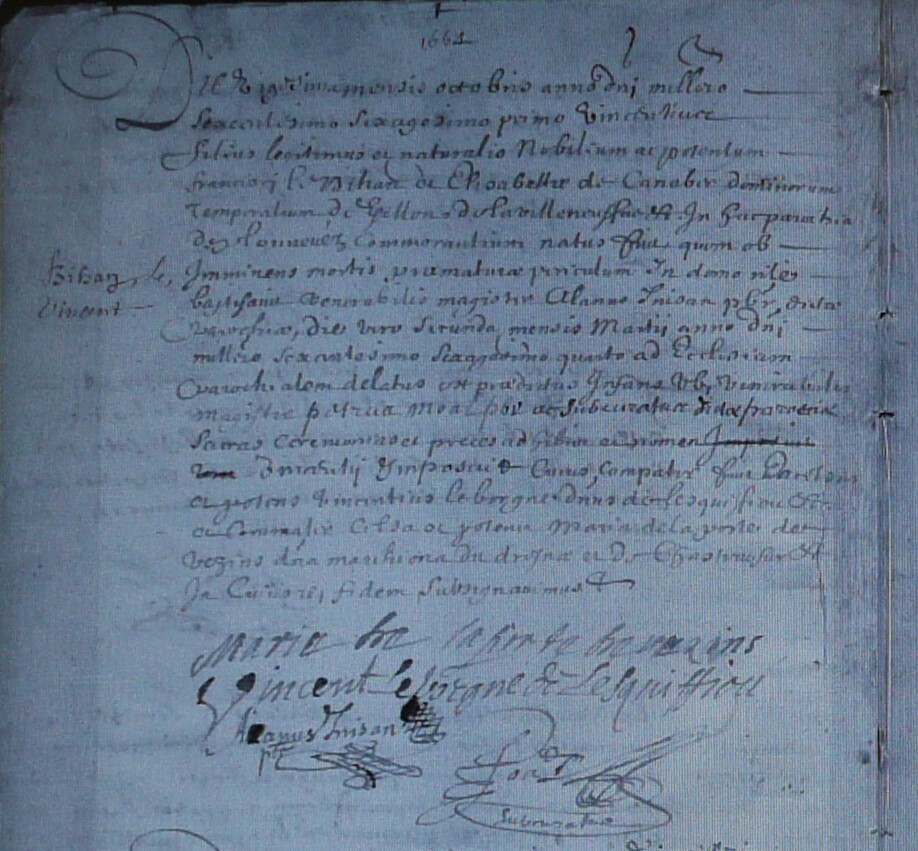 1664
Die mensis octobris anno dni millero
Sexcentesimo Sexagesimo primo Vincentius
filius legitimus et naturalis Nobilium ac potentum
francisci le Bihan et Elisabethe de Canaber dominorum
Temporalium de In hac parochia
de plonevez Commorantium natus fuit quem ob
Bihan, le, Imminens mortis prematurae periculum In domo
Vincent baptisavit venerabilis magister Alanus Inisan pbr, dictae
parochiae, die vero secunda mensis Martij anno dni
millero sexcentesimo sexagesimo quarto ad Ecclesiam
parochialem delatus est praedictus Infans Ubi venerabilis
magister petrus Moal pbr ac Subcuratus dictae paroeciae
Sacras Ceremonias et preces ad et nomen Imposuit
Vincentij Imposuit Cuius, Compater fuit
ac potens Vincentius le borgne dnus de lesquifiou
et Commater Celsa ac potens Maria de la porte de
vezins dna marchiona du et De
In Cuius rei fidem Subsignavimus
Maria de la porte de vezins
Vincent le borgne de Lesquiffiou
Alanus Inisan
pbr
Subcuratus